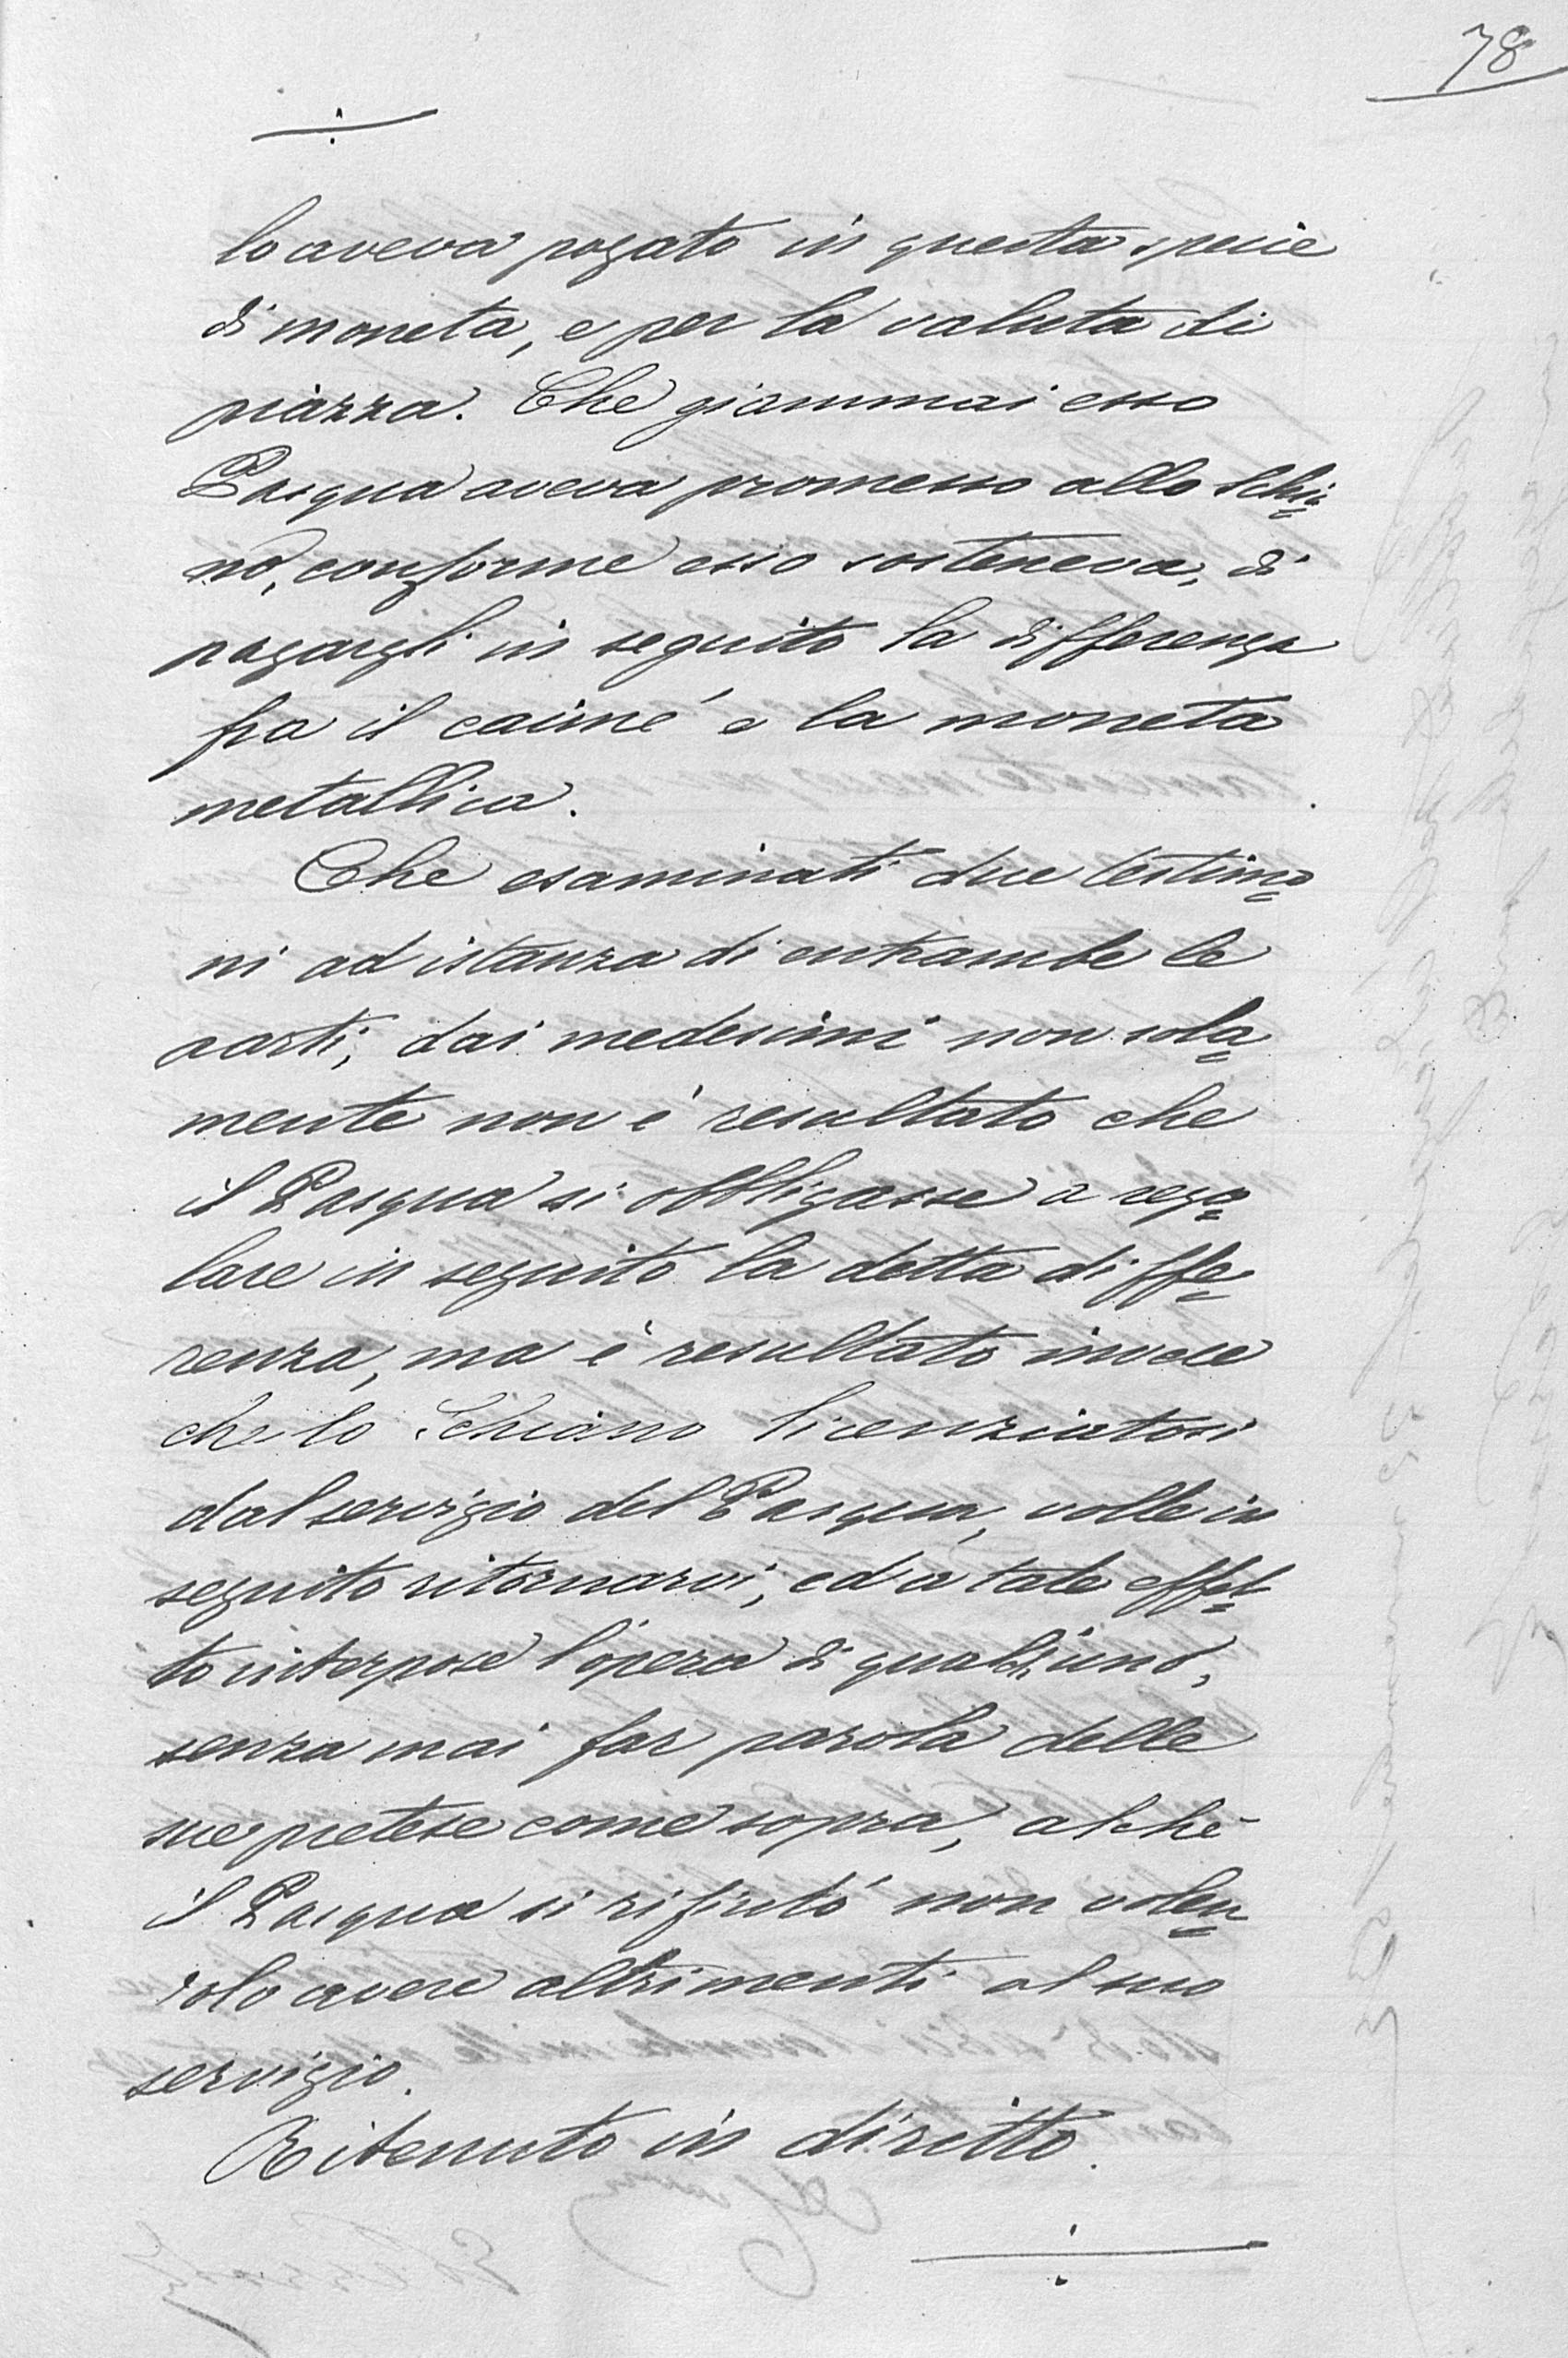 78
lo aveva pagato in questa specie
di moneta, e per la valuta di
piazza. Che giammai esso
Pasqua aveva promesso allo Schia=
no, conforme esso sosteneva, di
pagargli in seguito la differenza
fra il caimé e la moneta
metallica.
Che esaminati due testimo=
ni ad istanza di entrambe le
parti, dai medesimi non sola=
mente non è resultato che
il Pasqua si obbligasse a rego=
lare in seguito la detta diffe=
renza, ma è resultato invece
che lo Schiano licenziatosi
dal servizio del Pasqua, volle in
seguito ritornarvi, ed a tale effet=
to interpose l'opera di qualcuno,
senza mai far parola delle
sue pretese come sopra, al che
il Pasqua si rifiutó non volen=
dolo avere altrimenti al suo
servizio.
Ritenuto in diritto.